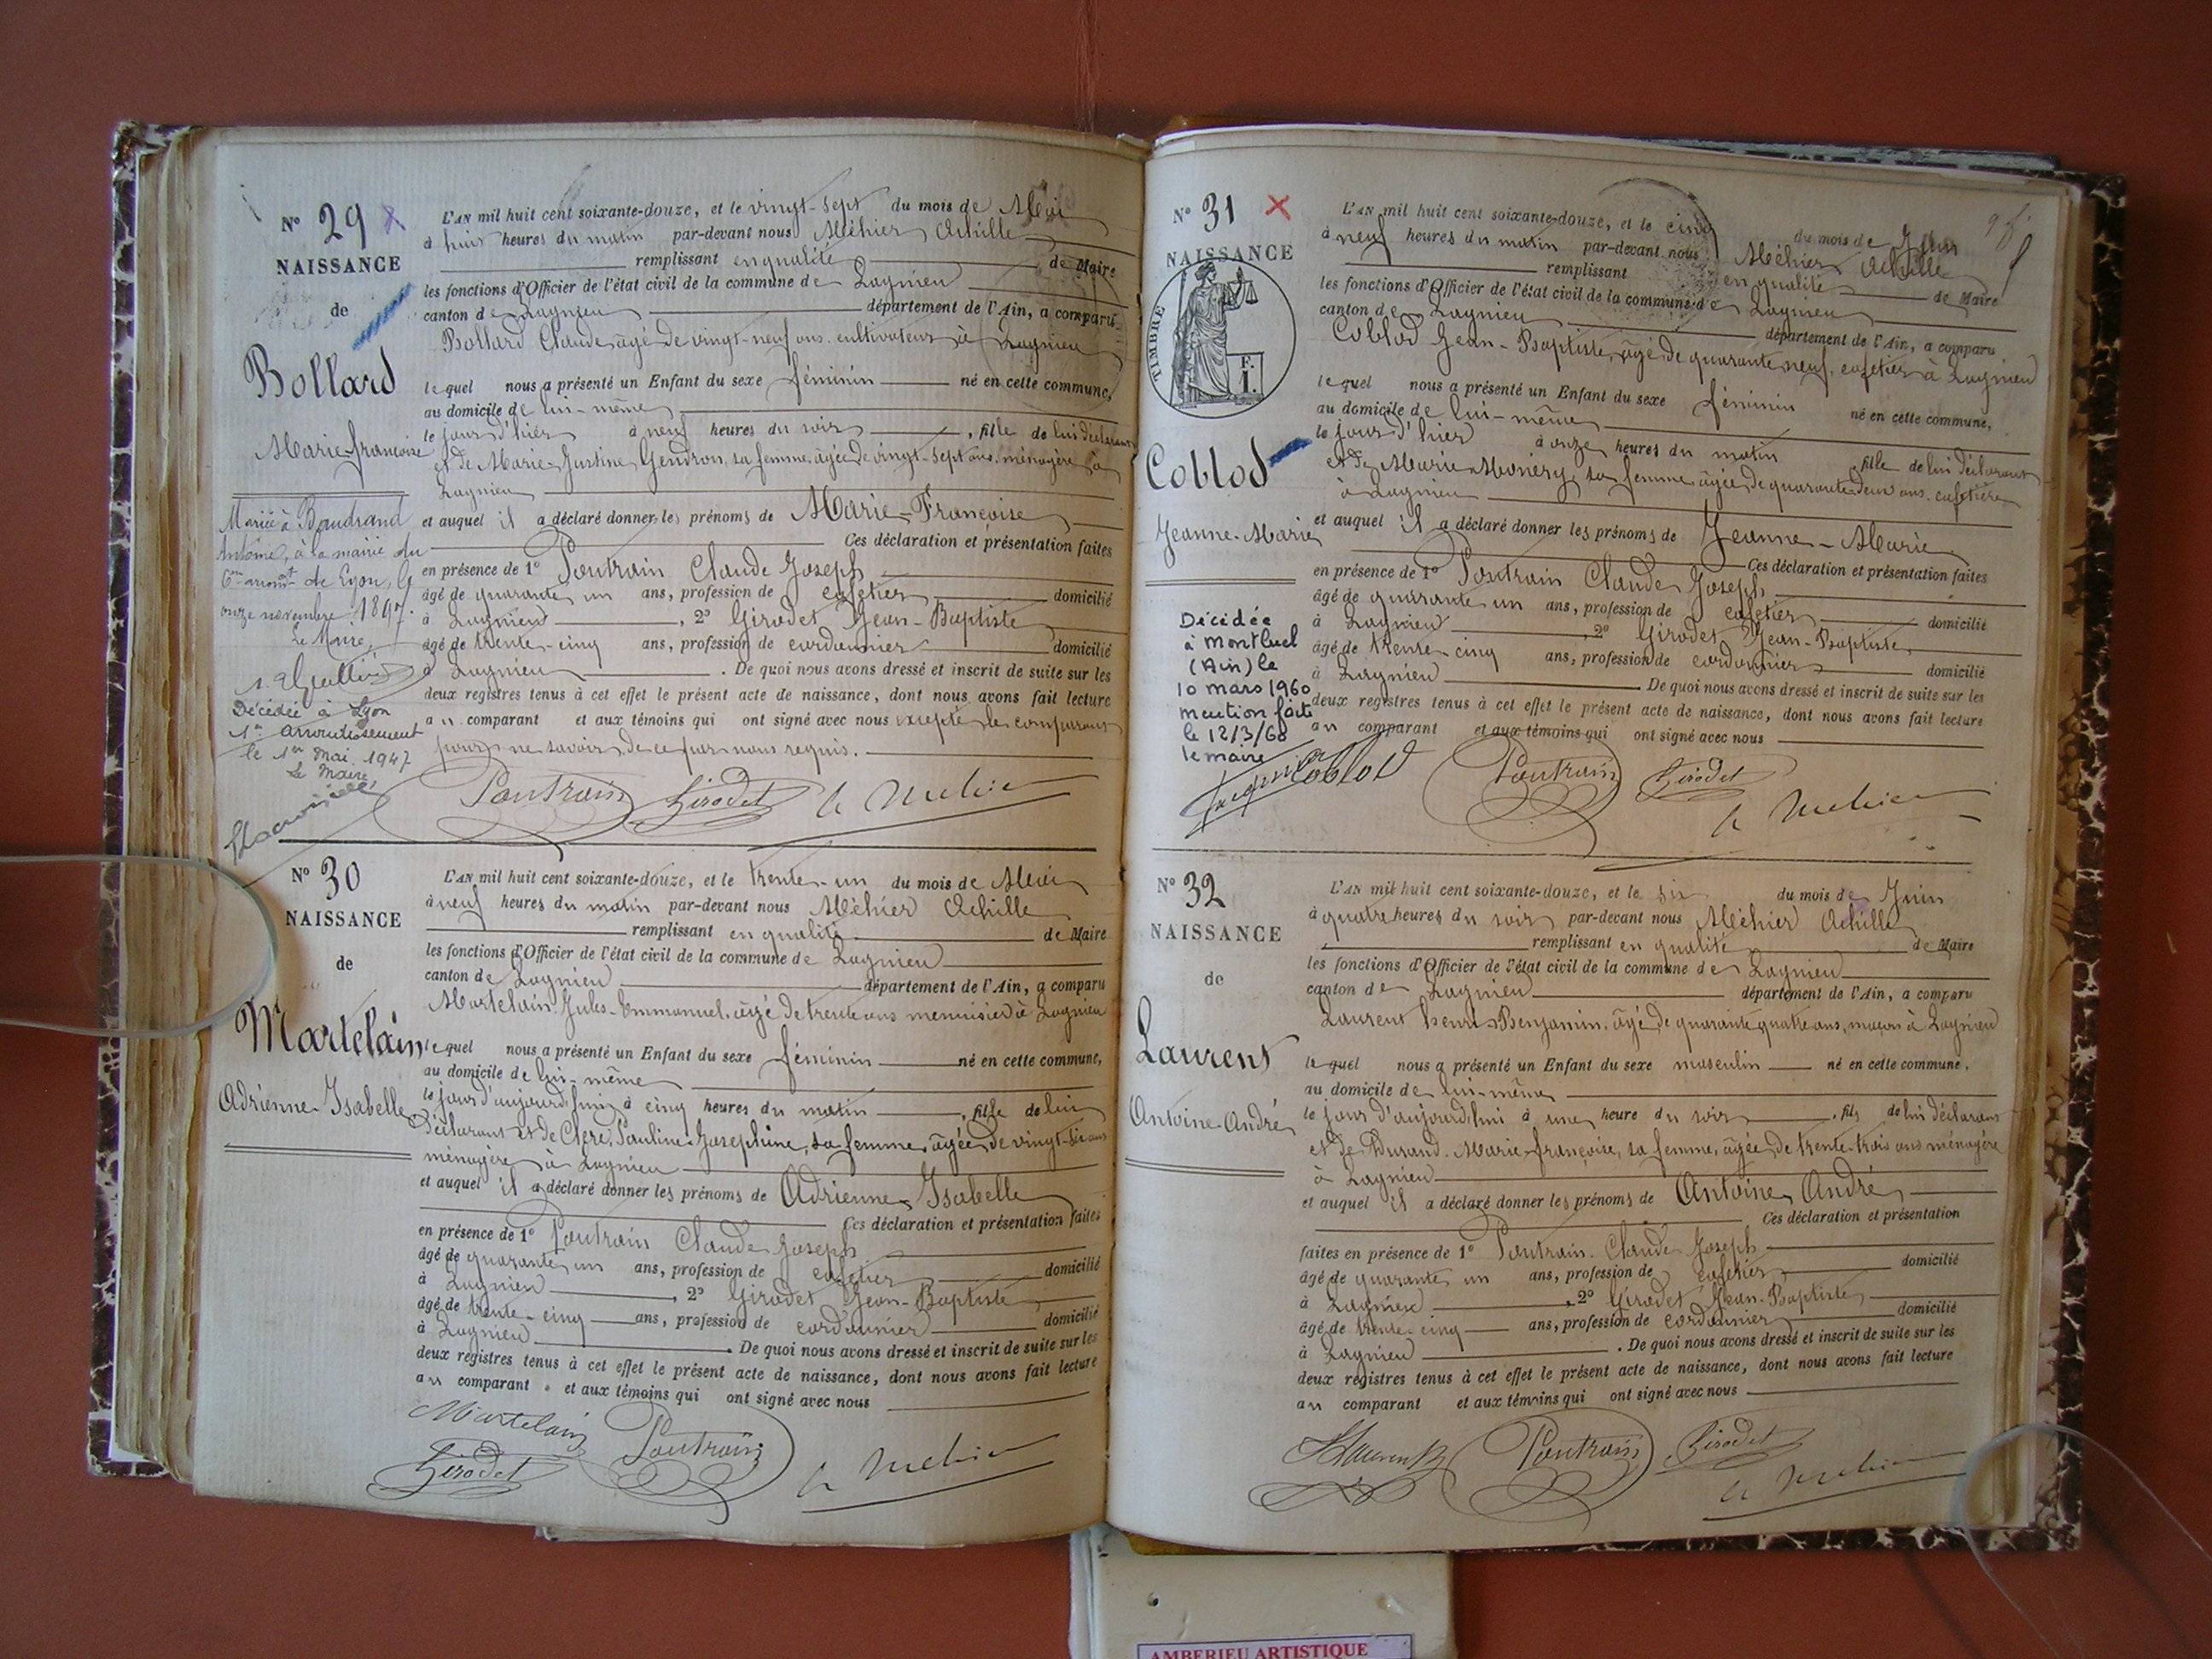 N° 29
NAISSANCE
de
Bollard
Marie-françoise
Mariée à Baudrand
Antoine, à la mairie du
6me arrondt de Lyon, le
onze novembre 1897.
Le Maire,
Décédée à Lyon
1er arrondissement
le 1er Mai 1947
Le Maire
L'AN mil huit cent soixante-douze, et le vingt-sept du mois de Mai
à huit heures du matin par-devant nous Méhier Achille
remplissant en qualité de Maire
les fonctions d'Officier de l'état civil de la commune de Lagnieu
canton de Lagnieu département de l'Ain, a comparu
Bollard Claude, âgé de vingt-neuf ans, cultivateur à Lagnieu
lequel nous a présenté un Enfant du sexe féminin né en cette commune,
au domicile de lui-même
le jour d'hier à neuf heures du soir, fille de lui déclarant
et de Marie-Justine Gendron, sa femme, âgée de vingt-sept ans, ménagère à
Lagnieu
et auquel il a déclaré donner les prénoms de Marie-Françoise
Ces déclaration et présentation faites
en présence de 1° Poutrain Claude Joseph
âgé de quarante un ans, profession de cafetier domicilié
à Lagnieu, 2° Girodet Jean-Baptiste
âgé de trente-cinq ans, profession de cordonnier domicilié
à Lagnieu. De quoi nous avons dressé et inscrit de suite sur les
deux registres tenus à cet effet le présent acte de naissance, dont nous avons fait lecture
au comparant et aux témoins qui ont signé avec nous excepté le comparant
pour ne savoir de ce par nous requis.
Poutrain Girodet A Méhier
N° 30
NAISSANCE
de
Martelain
Adrienne-Isabelle
L'AN mil huit cent soixante-douze, et le trente-un du mois de Mai
à neuf heures du matin par-devant nous Méhier Achille
remplissant en qualité de Maire
les fonctions d'Officier de l'état civil de la commune de Lagnieu
canton de Lagnieu département de l'Ain, a comparu
Martelain Jules-Emmanuel, âgé de trente ans menuisier à Lagnieu
lequel nous a présenté un Enfant du sexe féminin né en cette commune,
au domicile de lui-même
le jour d'aujourd'hui à cinq heures du matin, fille de lui
déclarant et de Clerc, Pauline-Josephine, sa femme, âgée de vingt-six ans
ménagère à Lagnieu
et auquel il a déclaré donner les prénoms de Adrienne Isabelle
Ces déclaration et présentation faites
en présence de 1° Poutrain Claude Joseph
âgé de quarante un ans, profession de cafetier domicilié
à Lagnieu, 2° Girodet Jean-Baptiste
âgé de trente-cinq ans, profession de cordonnier domicilié
à Lagnieu. De quoi nous avons dressé et inscrit de suite sur les
deux registres tenus à cet effet le présent acte de naissance, dont nous avons fait lecture
au comparant et aux témoins qui ont signé avec nous
Martelain Poutrain
Girodet A Méhier
N° 31
NAISSANCE
TIMBRE
F.
1.
Coblod
Jeanne-Marie
Décédée
à Montluel
(Ain) le
10 mars 1960
mention faite
le 12/3/60
le maire
L'AN mil huit cent soixante-douze, et le cinq du mois de Juin
à neuf heures du matin par-devant nous Méhier Achille
remplissant en qualité de Maire
les fonctions d'Officier de l'état civil de la commune de Lagnieu
canton de Lagnieu département de l'Ain, a comparu
Coblod Jean-Baptiste, âgé de quarante neuf, cafetier à Lagnieu
lequel nous a présenté un Enfant du sexe féminin né en cette commune,
au domicile de lui-même
le jour d'hier à onze heures du matin fille de lui déclarant
et de Marie Moniery, sa femme âgée de quarante-deux ans, cafetière
à Lagnieu
et auquel il a déclaré donner les prénoms de Jeanne-Marie
Ces déclaration et présentation faites
en présence de 1° Poutrain Claude Joseph
âgé de quarante un ans, profession de cafetier domicilié
à Lagnieu, 2° Girodet Jean-Baptiste,
âgé de trente-cinq ans, profession de cordonnier domicilié
à Lagnieu. De quoi nous avons dressé et inscrit de suite sur les
deux registres tenus à cet effet le présent acte de naissance, dont nous avons fait lecture
au comparant et aux témoins qui ont signé avec nous
Coblod Poutrain Girodet
A Méhier
N° 32
NAISSANCE
de
Laurent
Antoine-André
L'AN mil huit cent soixante-douze, et le six du mois de Juin
à quatre heures du soir par-devant nous Méhier Achille
remplissant en qualité de Maire
les fonctions d'Officier de l'état civil de la commune de Lagnieu
canton de Lagnieu département de l'Ain, a comparu
Laurent henri-Benjamin, âgé de quarante quatre ans, maçon à Lagnieu
lequel nous a présenté un Enfant du sexe masculin né en cette commune,
au domicile de lui-même
le jour d'aujourd'hui à une heure du soir, fils de lui déclarant
et de Durand Marie-françoise, sa femme, âgée de trente-trois ans ménagère
à Lagnieu
et auquel il a déclaré donner les prénoms de Antoine André
Ces déclaration et présentation
faites en présence de 1° Poutrain Claude Joseph
âgé de quarante un ans, profession de cafetier domicilié
à Lagnieu, 2° Girodet Jean-Baptiste
âgé de trente-cinq ans, profession de cordonnier domicilié
à Lagnieu. De quoi nous avons dressé et inscrit de suite sur les
deux registres tenus à cet effet le présent acte de naissance, dont nous avons fait lecture
au comparant et aux témoins qui ont signé avec nous
Laurent Poutrain Girodet
A Méhier
AMBERIEU ARTISTIQUE